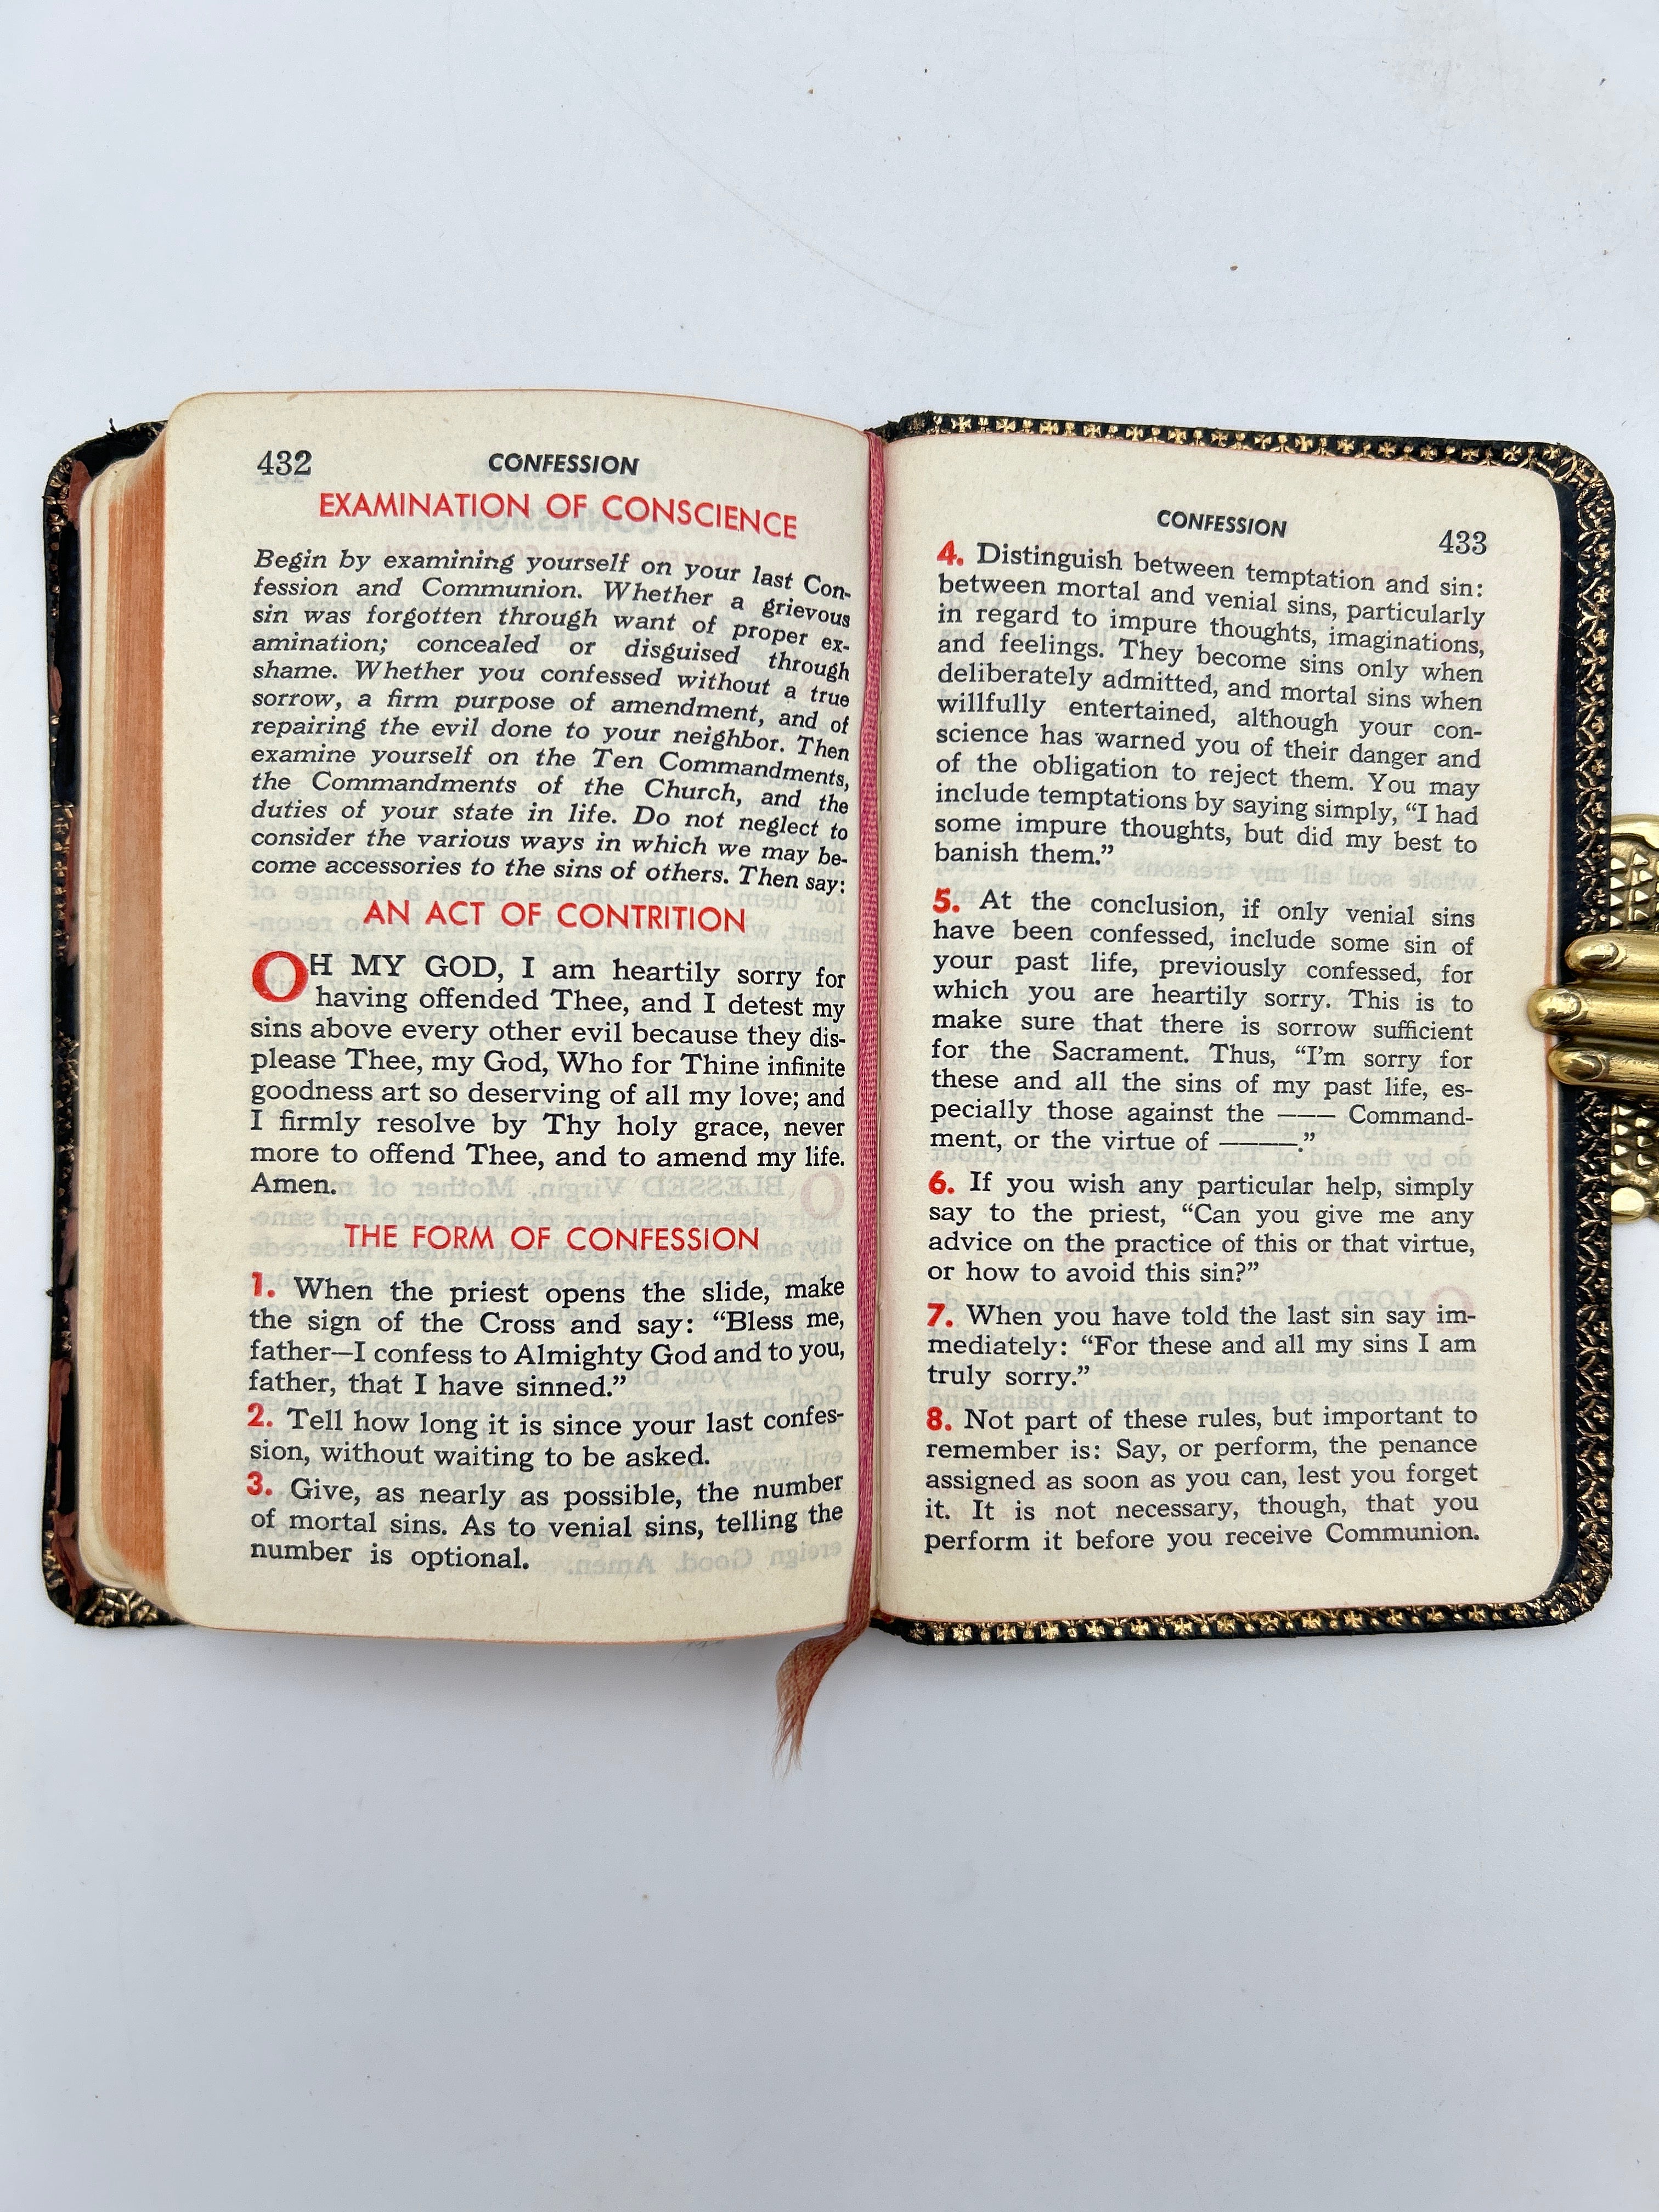 432 CONFESSION
EXAMINATION OF CONSCIENCE
Begin by examining yourself on your last Con-
fession and Communion. Whether a grievous
sin was forgotten through want of proper ex-
amination; concealed or disguised through
shame. Whether you confessed without a true
sorrow, a firm purpose of amendment, and of
repairing the evil done to your neighbor. Then
examine yourself on the Ten Commandments,
the Commandments of the Church, and the
duties of your state in life. Do not neglect to
consider the various ways in which we may be-
come accessories to the sins of others. Then say:
AN ACT OF CONTRITION
OH MY GOD, I am heartily sorry for
having offended Thee, and I detest my
sins above every other evil because they dis-
please Thee, my God, Who for Thine infinite
goodness art so deserving of all my love; and
I firmly resolve by Thy holy grace, never
more to offend Thee, and to amend my life.
Amen.
THE FORM OF CONFESSION
1. When the priest opens the slide, make
the sign of the Cross and say: “Bless me,
father—I confess to Almighty God and to you,
father, that I have sinned.”
2. Tell how long it is since your last confes-
sion, without waiting to be asked.
3. Give, as nearly as possible, the number
of mortal sins. As to venial sins, telling the
number is optional.
CONFESSION 433
4. Distinguish between temptation and sin:
between mortal and venial sins, particularly
in regard to impure thoughts, imaginations,
and feelings. They become sins only when
deliberately admitted, and mortal sins when
willfully entertained, although your con-
science has warned you of their danger and
of the obligation to reject them. You may
include temptations by saying simply, “I had
some impure thoughts, but did my best to
banish them.”
5. At the conclusion, if only venial sins
have been confessed, include some sin of
your past life, previously confessed, for
which you are heartily sorry. This is to
make sure that there is sorrow sufficient
for the Sacrament. Thus, “I’m sorry for
these and all the sins of my past life, es-
pecially those against the ——— Command-
ment, or the virtue of ————.”
6. If you wish any particular help, simply
say to the priest, “Can you give me any
advice on the practice of this or that virtue,
or how to avoid this sin?”
7. When you have told the last sin say im-
mediately: “For these and all my sins I am
truly sorry.”
8. Not part of these rules, but important to
remember is: Say, or perform, the penance
assigned as soon as you can, lest you forget
it. It is not necessary, though, that you
perform it before you receive Communion.